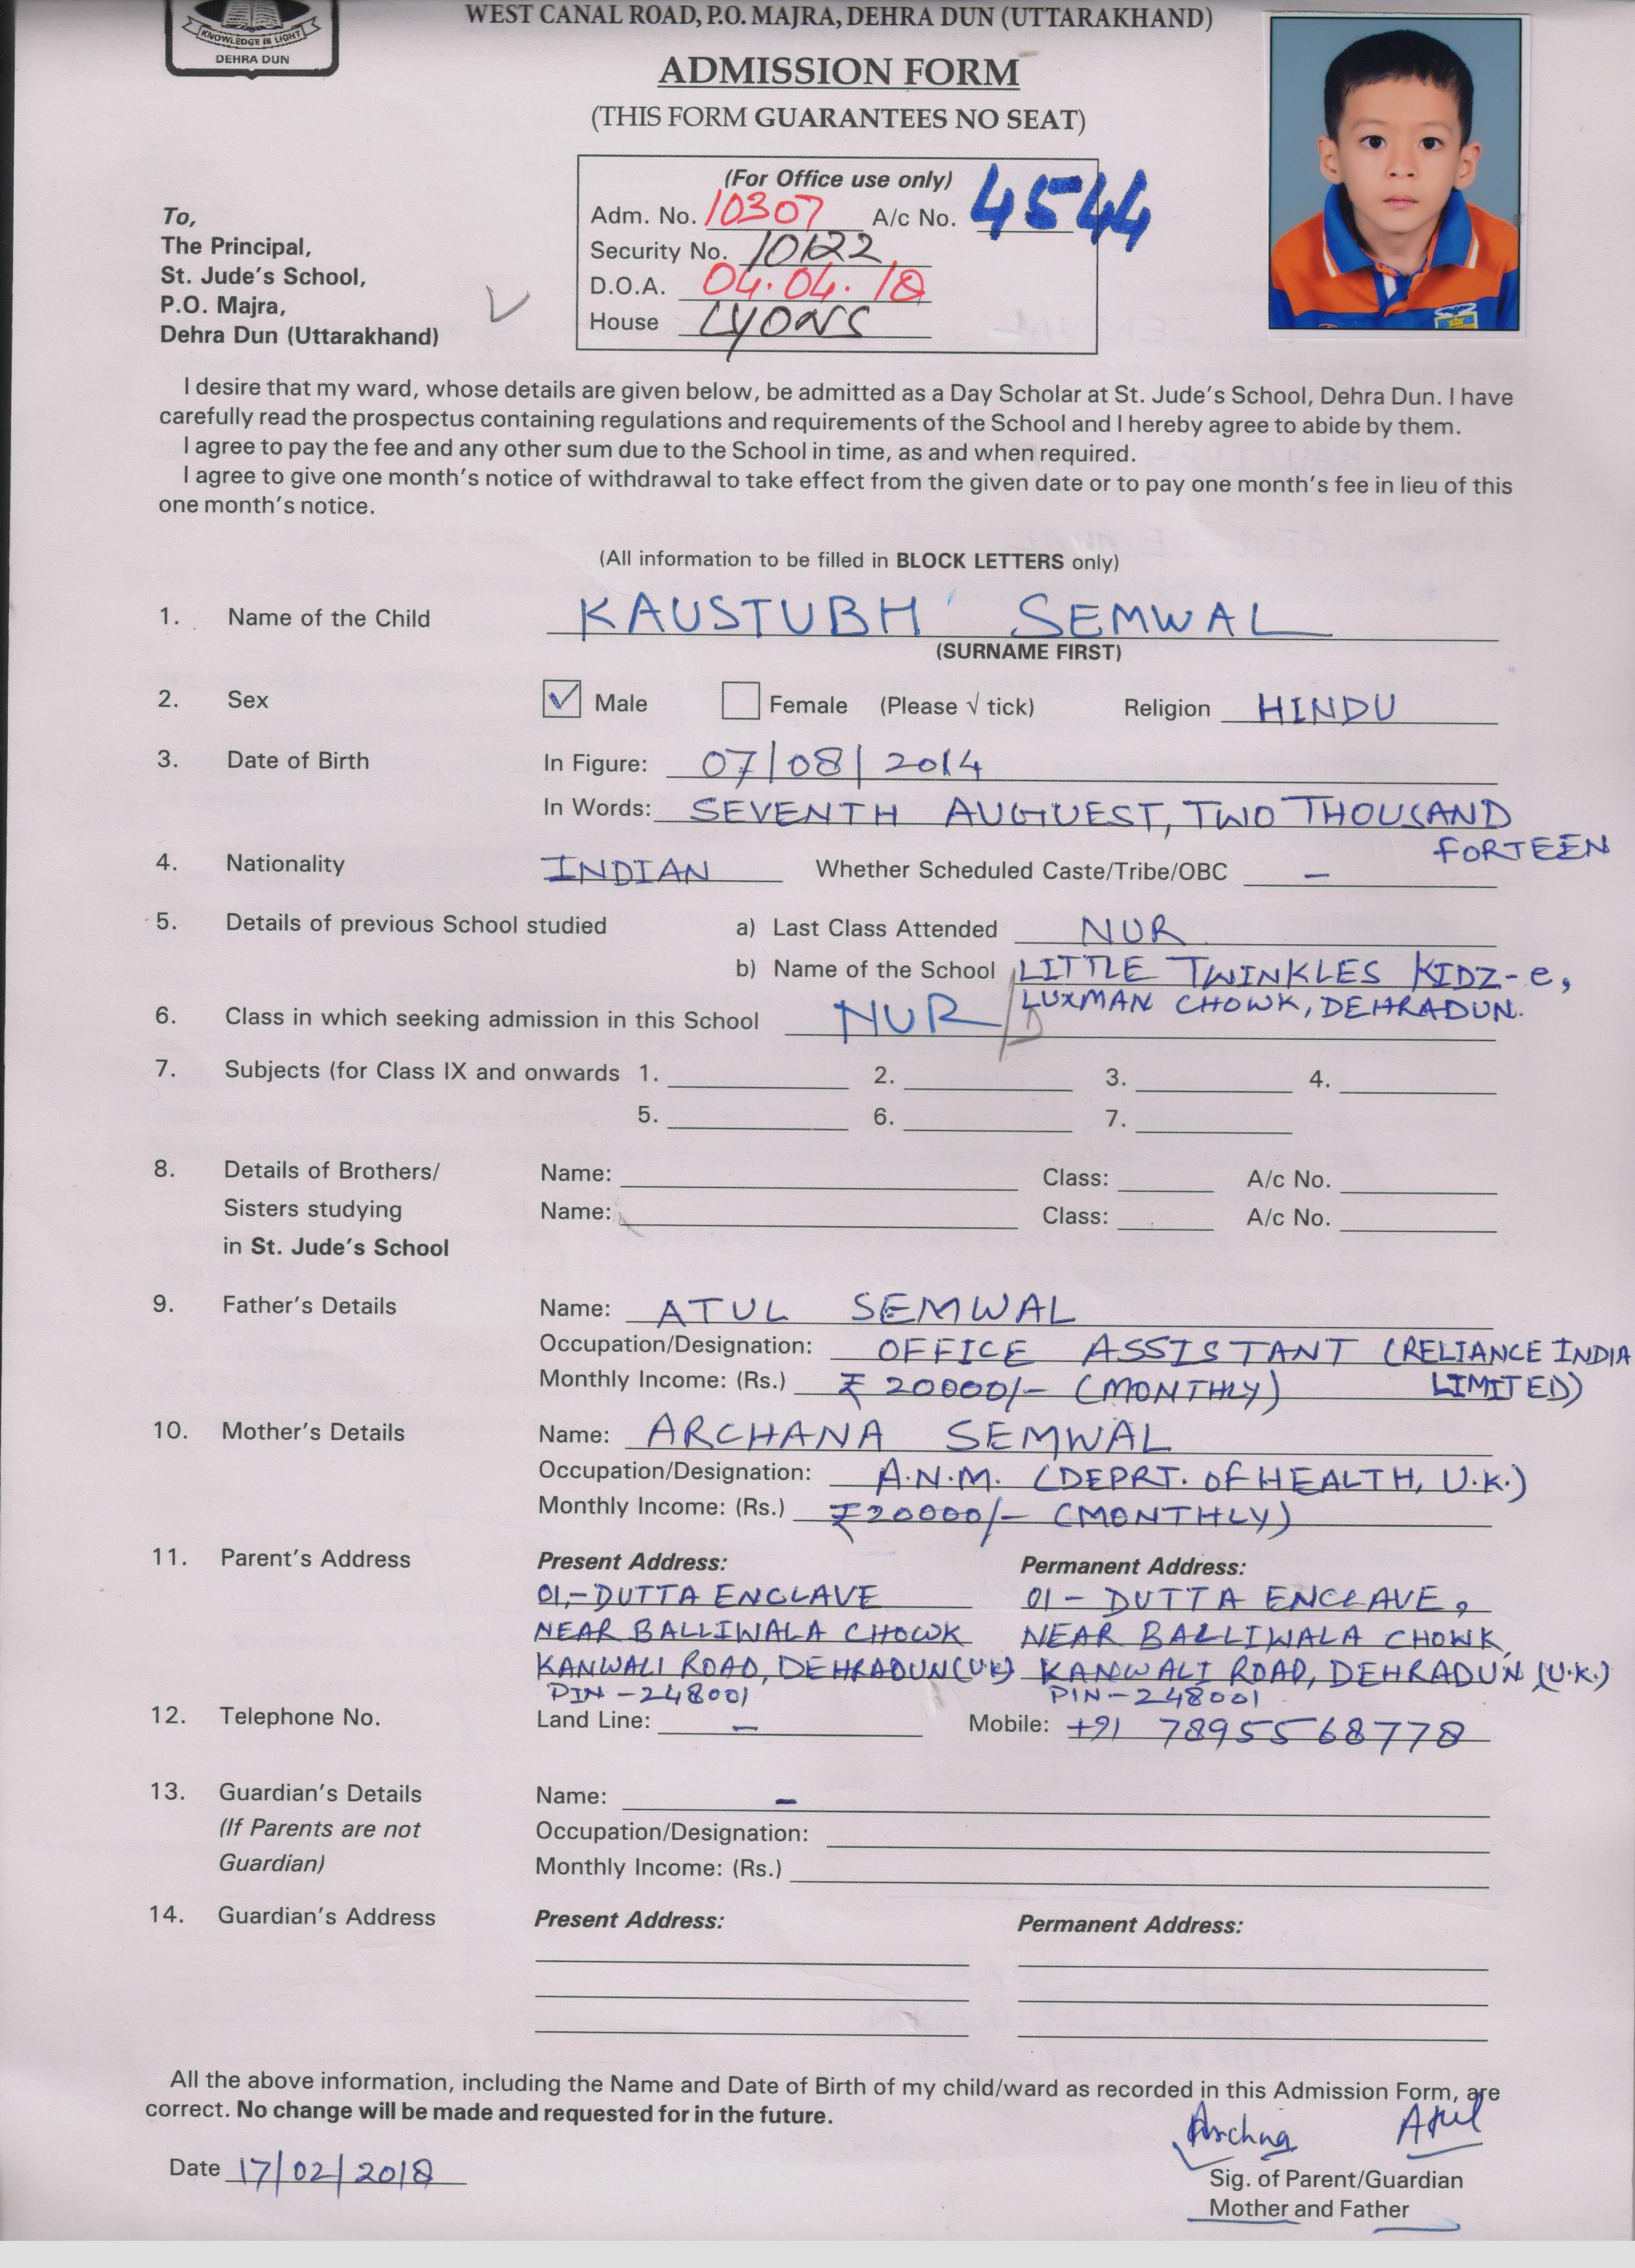 KNOWLEDGE IS LIGHT
DEHRA DUN
WEST CANAL ROAD, P.O. MAJRA, DEHRA DUN (UTTARAKHAND)
ADMISSION FORM
(THIS FORM GUARANTEES NO SEAT)
(For Office use only)
Adm. No. 10307 A/c No. 4544
Security No. 10122
D.O.A. 04.04.18
House LYONS
To,
The Principal,
St. Jude's School,
P.O. Majra,
Dehra Dun (Uttarakhand)
I desire that my ward, whose details are given below, be admitted as a Day Scholar at St. Jude's School, Dehra Dun. I have
carefully read the prospectus containing regulations and requirements of the School and I hereby agree to abide by them.
I agree to pay the fee and any other sum due to the School in time, as and when required.
I agree to give one month's notice of withdrawal to take effect from the given date or to pay one month's fee in lieu of this
one month's notice.
(All information to be filled in BLOCK LETTERS only)
1. Name of the Child KAUSTUBH SEMWAL
(SURNAME FIRST)
2. Sex ✓ Male Female (Please √ tick) Religion HINDU
3. Date of Birth In Figure: 07/08/2014
In Words: SEVENTH AUGUEST, TWO THOUSAND
FORTEEN
4. Nationality INDIAN Whether Scheduled Caste/Tribe/OBC –
5. Details of previous School studied a) Last Class Attended NUR
b) Name of the School LITTLE TWINKLES KIDZ-e,
LUXMAN CHOWK, DEHRADUN.
6. Class in which seeking admission in this School NUR / D
7. Subjects (for Class IX and onwards 1. 2. 3. 4.
5. 6. 7.
8. Details of Brothers/ Name: Class: A/c No.
Sisters studying Name: Class: A/c No.
in St. Jude's School
9. Father's Details Name: ATUL SEMWAL
Occupation/Designation: OFFICE ASSISTANT (RELIANCE INDIA
Monthly Income: (Rs.) ₹ 20000/- (MONTHLY) LIMITED)
10. Mother's Details Name: ARCHANA SEMWAL
Occupation/Designation: A.N.M. (DEPRT. OF HEALTH, U.K.)
Monthly Income: (Rs.) ₹20000/- (MONTHLY)
11. Parent's Address Present Address: Permanent Address:
01,-DUTTA ENCLAVE 01 - DUTTA ENCLAVE,
NEAR BALLIWALA CHOWK NEAR BALLIWALA CHOWK,
KANWALI ROAD, DEHRADUN(U.K) KANWALI ROAD, DEHRADUN (U.K.)
PIN-248001 PIN-248001
12. Telephone No. Land Line: – Mobile: +91 7895568778
13. Guardian's Details Name: –
(If Parents are not Occupation/Designation:
Guardian) Monthly Income: (Rs.)
14. Guardian's Address Present Address: Permanent Address:
All the above information, including the Name and Date of Birth of my child/ward as recorded in this Admission Form, are
correct. No change will be made and requested for in the future.
Archna Atul
Date 17/02/2018
Sig. of Parent/Guardian
Mother and Father